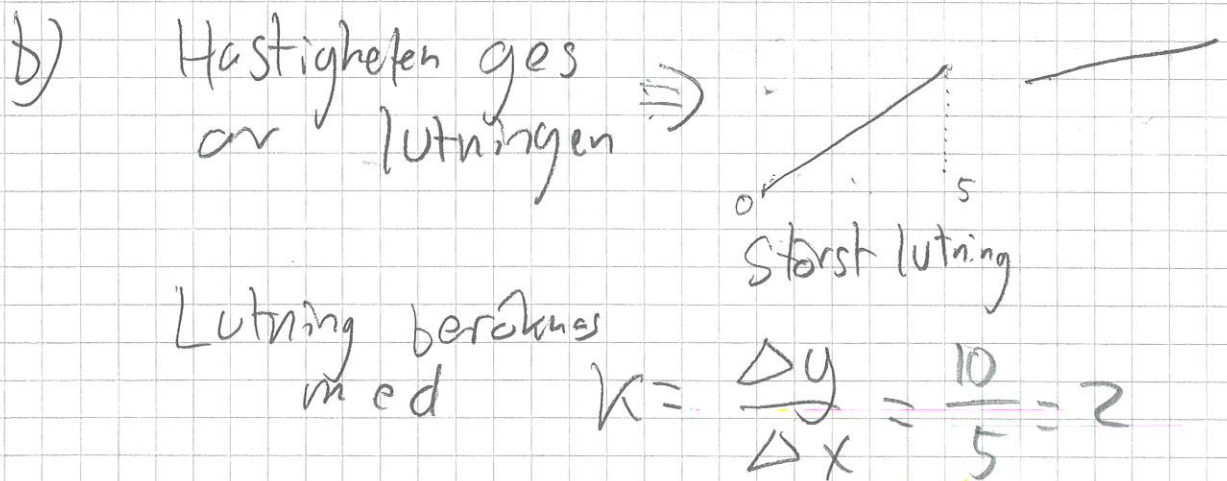 b) Hastigheten ges
av lutningen ⇒
0 5
Störst lutning
Lutning beräknas
med K = Δy/Δx = 10/5 = 2